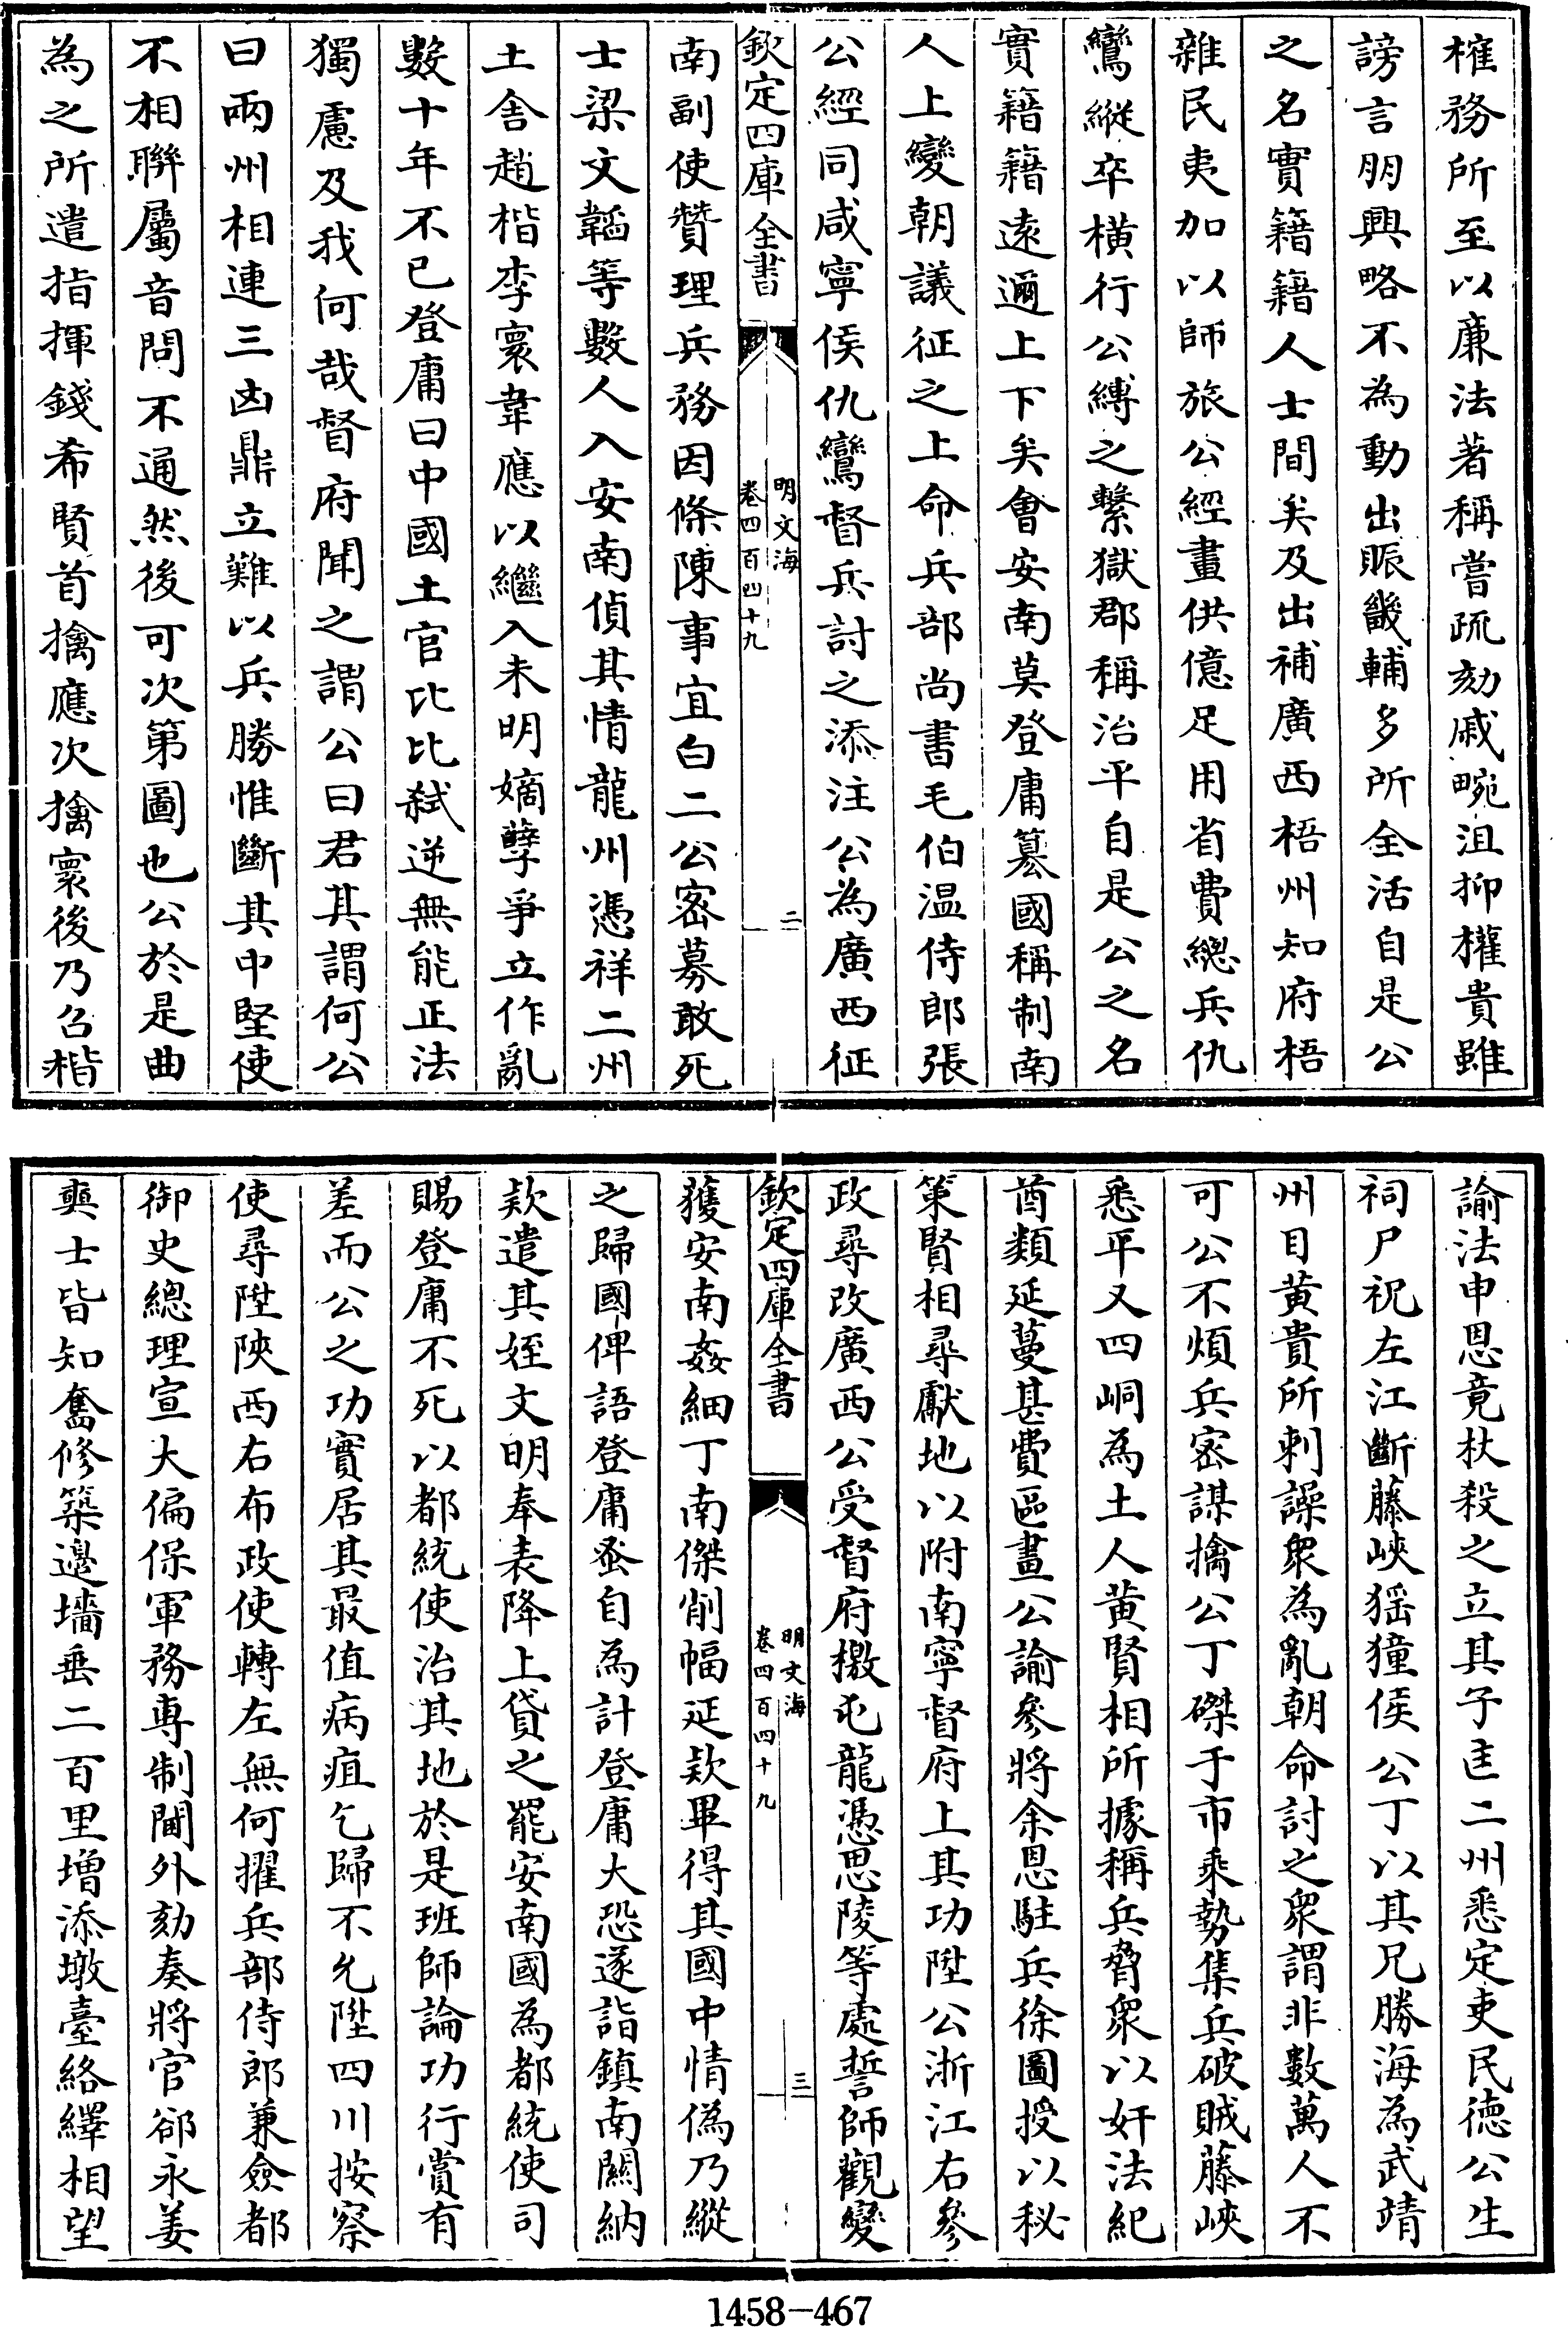 榷務所至以廉法著稱嘗疏劾戚畹沮抑權貴雖
謗言朋興略不為動出賑畿輔多所全活自是公
之名實籍籍人士間矣及出補廣西梧州知府梧
雜民夷加以師旅公經畫供億足用省費總兵仇
鸞縱卒橫行公縛之繫獄郡稱治平自是公之名
實籍籍遠邇上下矣會安南莫登庸簒國稱制南
人上變朝議征之上命兵部尚書毛伯温侍郎張
公經同咸寧侯仇鸞督兵討之添注公為廣西征
欽定四庫全書
明文海
卷四百四十九
二
南副使贊理兵務因條陳事宜白二公密募敢死
士梁文韜等數人入安南偵其情龍州憑祥二州
土舍趙楷李寰韋應以繼入未明嫡孽爭立作亂
數十年不已登庸曰中國土官比比弑逆無能正法
獨慮及我何哉督府聞之謂公曰君其謂何公
曰兩州相連三凶鼎立難以兵勝惟斷其中堅使
不相聯屬音問不通然後可次第圖也公於是曲
為之所遣指揮錢希賢首擒應次擒寰後乃召楷
諭法申恩竟杖殺之立其子匡二州悉定吏民德公生
祠尸祝左江斷藤峽猺獞侯公丁以其兄勝海為武靖
州目黃貴所刺譟衆為亂朝命討之衆謂非數萬人不
可公不煩兵密謀擒公丁磔于市乘勢集兵破賊藤峽
悉平又四峒為土人黃賢相所據稱兵脅衆以奸法紀
酋類延蔓甚費區畫公諭參將余恩駐兵徐圖授以秘
策賢相尋獻地以附南寧督府上其功陞公浙江右參
政尋改廣西公受督府檄屯龍憑思陵等處誓師觀變
欽定四庫全書
明文海
卷四百四十九
三
獲安南姦細丁南傑削幅延款畢得其國中情偽乃縱
之歸國俾語登庸蚤自為計登庸大恐遂詣鎮南關納
欵遣其姪文明奉表降上貸之罷安南國為都統使司
賜登庸不死以都統使治其地於是班師論功行賞有
差而公之功實居其最值病疽乞歸不允陞四川按察
使尋陞陝西右布政使轉左無何擢兵部侍郎兼僉都
御史總理宣大偏保軍務專制閫外劾奏將官郤永姜
奭士皆知奮修築邊墻垂二百里增添墩臺絡繹相望
1458-467